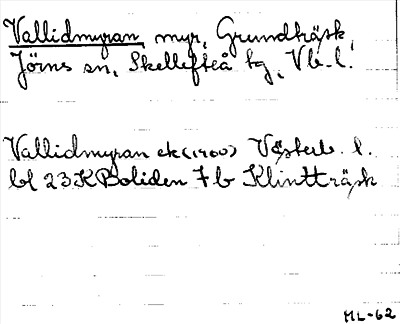 Vallidmyran, myr, Grundträsk,
Jörns sn, Skellefteå tg, Vb. l.
Vallidmyran ek (1900) Västerb. l.
bl 23 K Boliden 7 b Klintträsk
ML-62